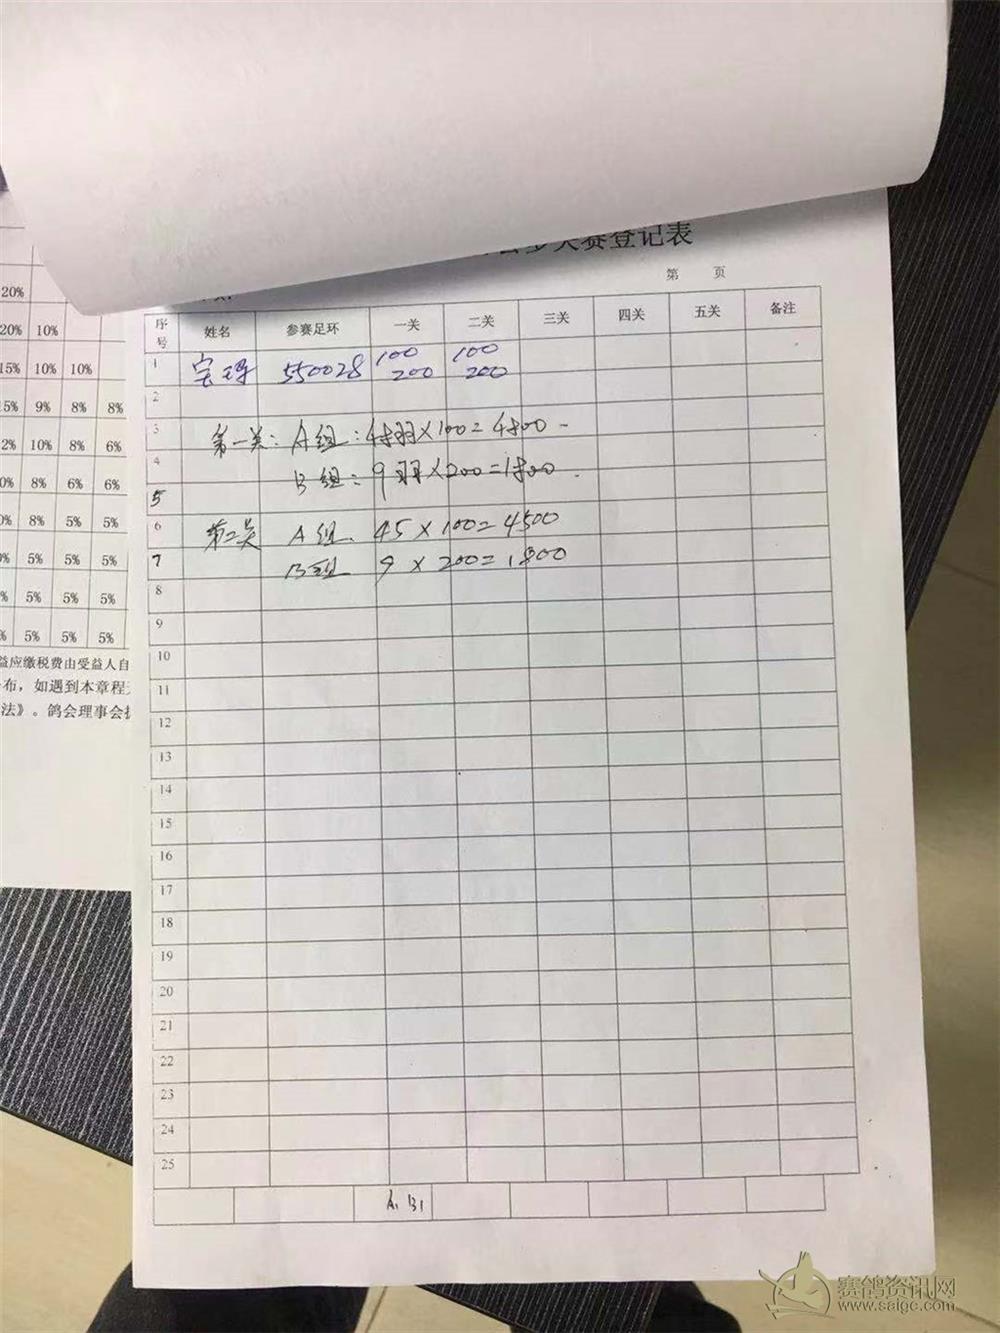 大赛登记表
第 页
序号 姓名 参赛足环 一关 二关 三关 四关 五关 备注
1 550028 100 200 100 200
2
3 第一关: A组: 48羽×100=4800
4 B组: 9羽×200=1800
5
6 第二关 A组 45×100=4500
7 B组 9×200=1800
8
9
10
11
12
13
14
15
16
17
18
19
20
21
22
23
24
25
A. B1
20%
20% 10%
15% 10% 10%
5% 9% 8% 8%
2% 10% 8% 6%
0% 8% 6% 6%
0% 8% 5% 5%
% 5% 5% 5%
% 5% 5% 5%
% 5% 5% 5%
益应缴税费由受益人自
布，如遇到本章程
法》。鸽会理事会
赛鸽资讯网
www.saigc.com